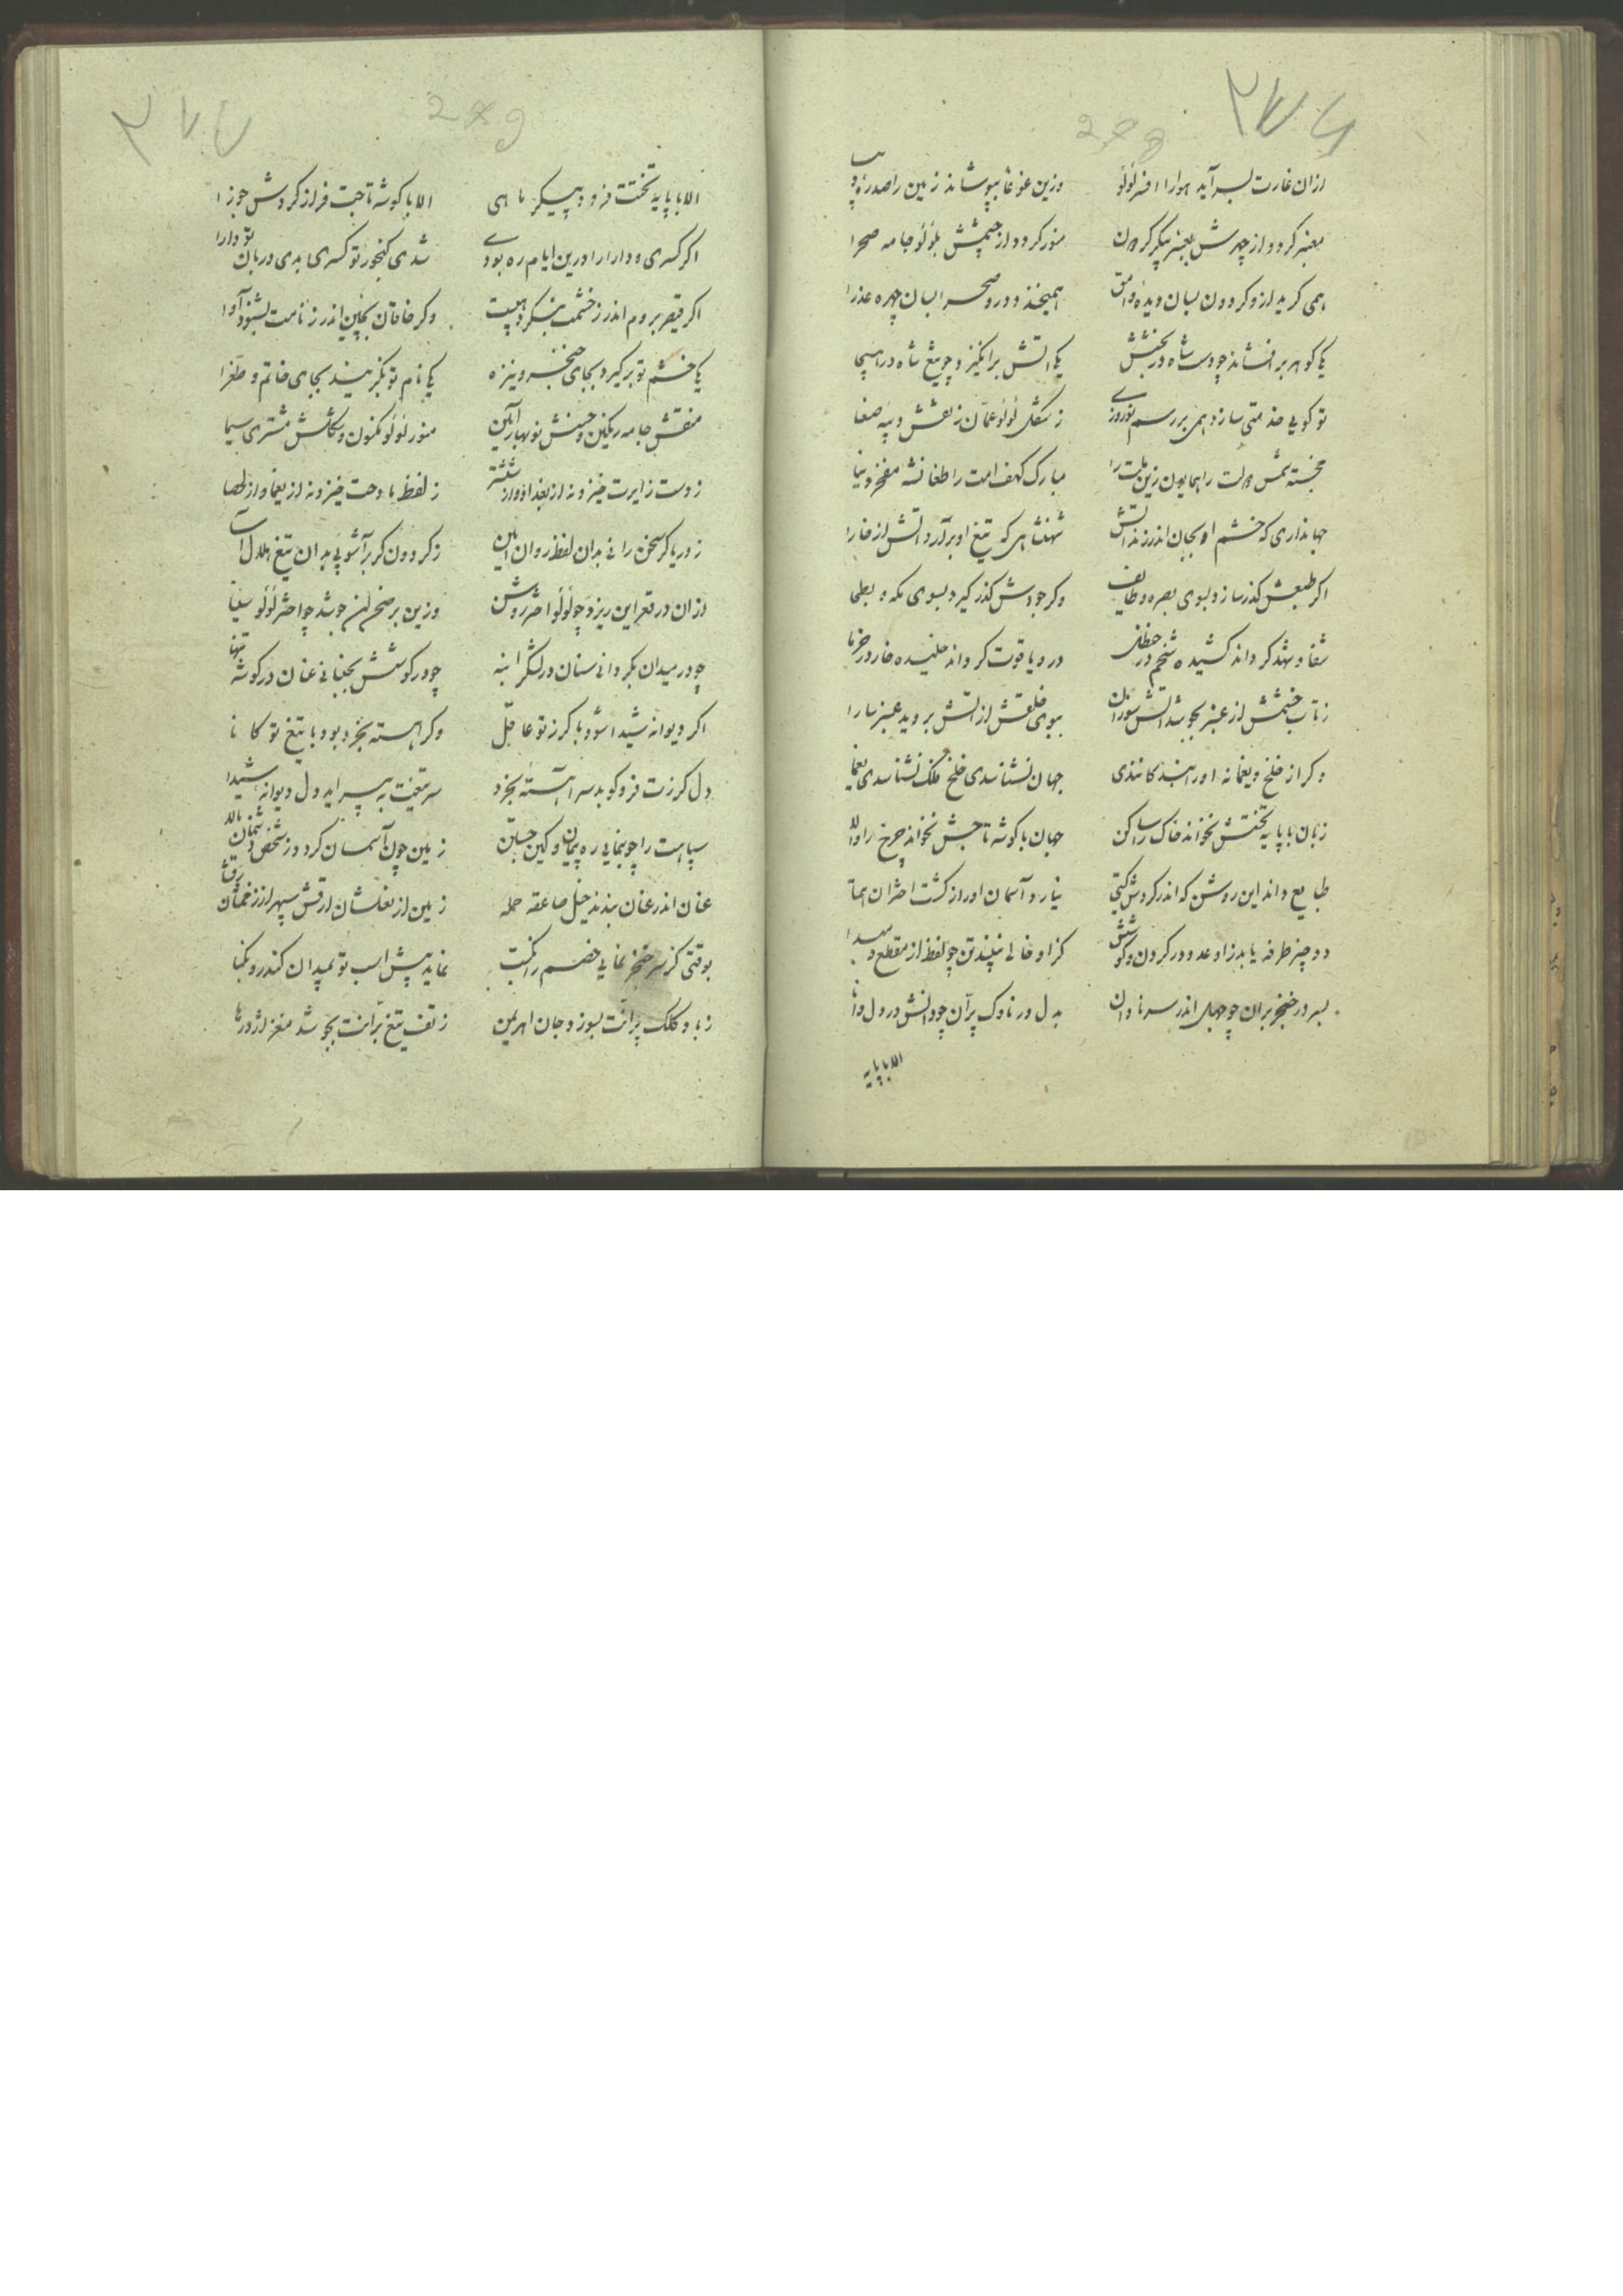 ۲۷۶
278
ازان غارت بسر آید هوارا افسر لؤلؤ وزین غوغا بپوشاند زمین را صدرهٔ دیبا
معنبر کردد از چهرش بعنبر پیکر کردون منور کردد از چشمش بلؤلؤ جامه صحرا
همی کرید ازو کردون بسان دیدهٔ وامق همیخندد درو صحرا بسان چهره عذرا
یکی کوهر برافشاند چو دست شاه در بخشش یکی اتش برانکیزد چو تیغ شاه در هیجا
تو کویی خدمتی سازد همی بر رسم نوروزی ز شکل لؤلؤ عمان ز نقش دیبه صنعا
خجسته شمس دولت را همایون زین ملت را مبارک کهف امت را طغانشه مفخر دنیا
جهانداری که خشم او بجان اندر زند اتش شهنشاهی که تیغ او برآرد اتش از خارا
اکر طبعش کذر سازد بسوی بصره و طایف وکر جودش کذر کیرد بسوی مکه و بطحا
شفا و شهد کرداند کشیده شحم در حنظل در و یاقوت کرداند خلیده خار در خرما
ز تاب خشمش از عنبر بجوشد اتش سوزان ببوی خلقش از اتش بروید عنبر سارا
وکر از خلخ و یغما نه اورا بندکانندی جهان نشناسدی خلخ ملک نشناسدی یغما
زبان با پایه تختش نخواند خاک را ساکن جهان با کوشه تاجش نخواند چرخ را والا
طبایع داند این روشن که اندر کردش کیتی نیارد آسمان اورا ز کشت اختران همتا
دو چیز طرفه یابد زو عدو در کردون و کوشش کزو خالی نبینند تن چو لفظ از مقطع و مبدا
بسر در خنجر بران چو جهل اندر سر نادان بدل در ناوک پران چو دانش در دل دانا
الا با پایه
۲۷۷
279
الا با پایه تختت فرود پیکر ماهی الا با کوشه تاجت فراز کردش جوزا
اکر کسری و دارا را درین ایام ره بودی شدی کنجور تو کسری بدی دربان تو دارا
اکر قیصر بروم اندر ز خشمت بنکرد هیبت وکر خاقان بچین اندر ز نامت بشنود آوا
یکی خشم تو برکیرد بجای خنجر و نیزه یکی نام تو بکزیند بجای خاتم و طغرا
منقش جامه رنکین و جنسش نوبهار آیین منور لؤلؤ مکنون و شکلش مشتری سیما
ز دست زایرت خیزد نه از بغداد و از ششتر ز لفظ مادحت خیزد نه از یغما و از لحصا
ز دریا کر سخن رانی بدان لفظ روان ایمن ز کردون کر برآشوبی بدان تیغ هلال آسا
ازان در قعر این ریزد چو لؤلؤ اختر روشن وزین بر صحن ان جوشد چو اختر لؤلؤ بیضا
چو در میدان بکردانی سنان در لشکر انبه چو در کوشش بجنبانی عنان در کوشه تنها
اکر دیوانه شیدا شود با کرز تو عاقل وکر اهسته بخرد بود با تیغ تو کانا
دل کرزت فرو کوبد سر اهسته بخرد سر تیغت بپیراید دل دیوانه شیدا
سپاهت را چو بنمایی ره پیمان و کین جستن زمین چون آسمان کردد ز شخص دشمنان بالا
عنان اندر عنان بندند خیل صاعقه حمله زمین از نعلشان ارقش سپهر از زخمشان رقشا
بوقتی کز سر خنجر نمایی خصم را نکبت نماید پیش اسب تو بمیدان کندرو نکبا
ز باد کلک پرانت بسوزد جان اهریمن ز تف تیغ برانت بجوشد مغز اژدرها